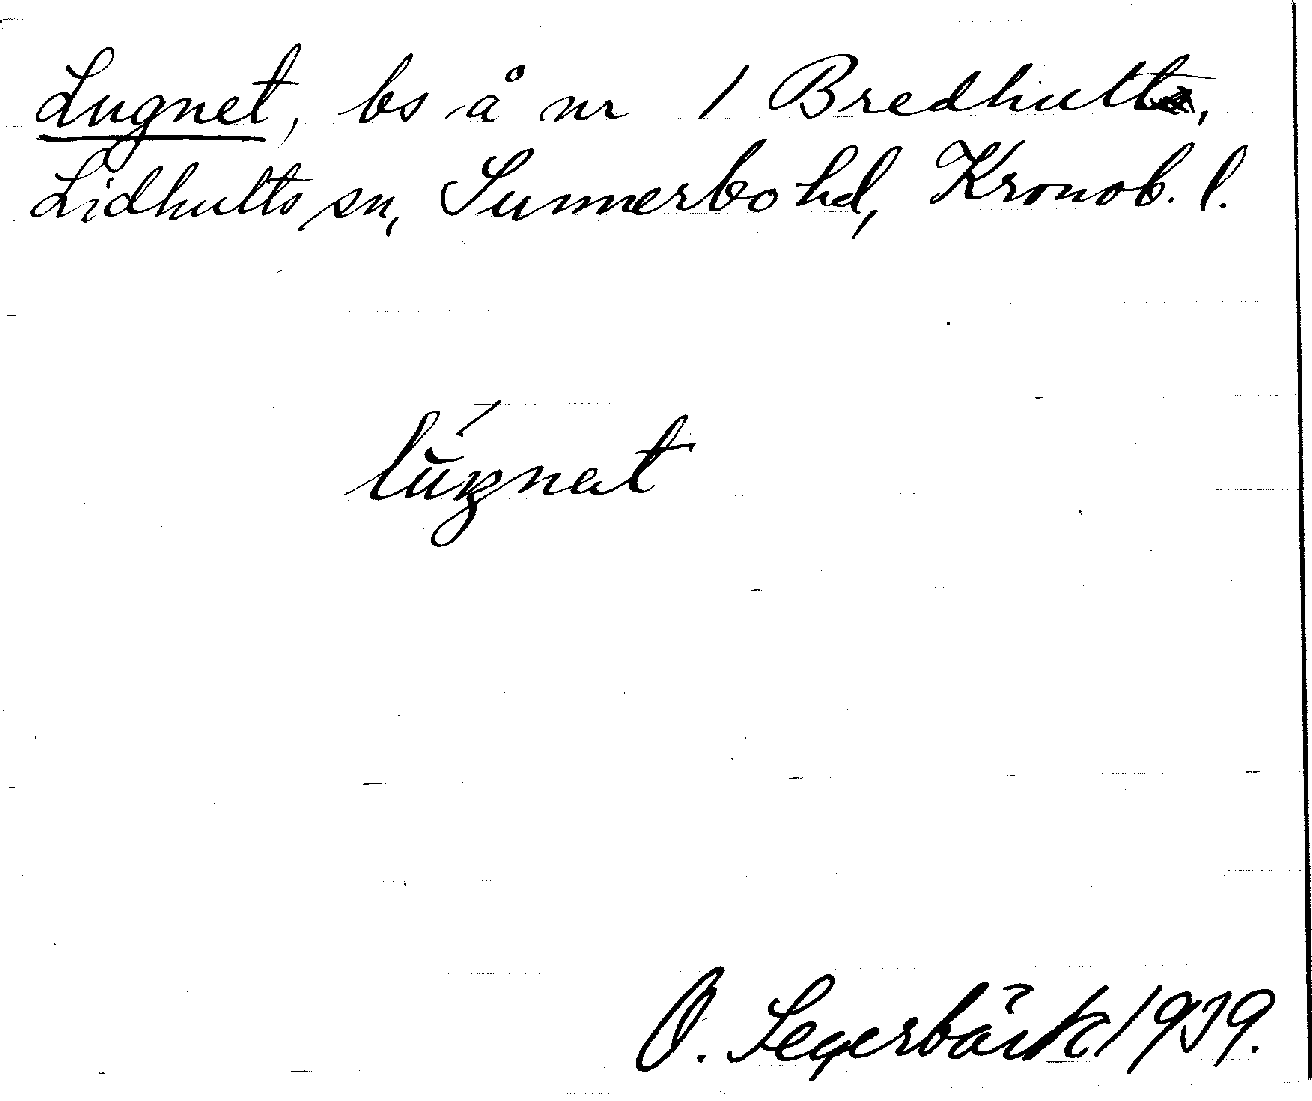 Lugnet, bs å nr 1 Bredhult,
Lidhults sn, Sunnerbo hd, Kronob. l.
lúŋnat
O. Segerbäck 1939.